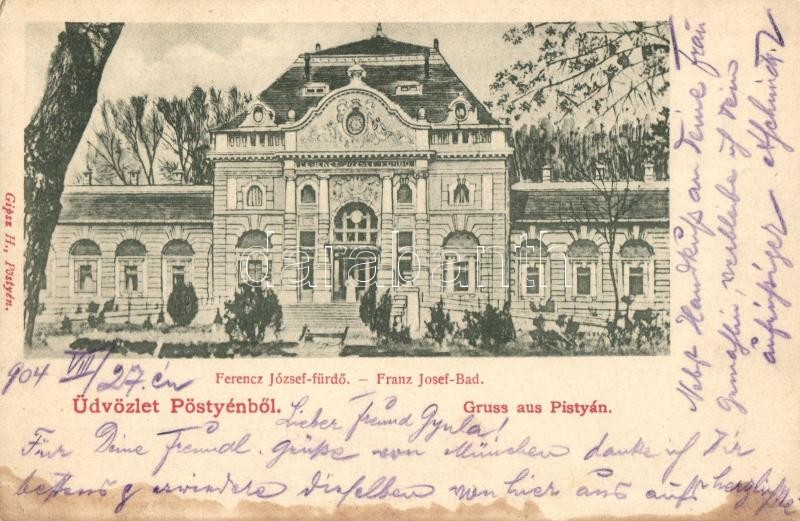 FERENCZ JÓZSEF FÜRDŐ
darabanth
Gipsz H., Pöstyén.
Ferencz József-fürdő. – Franz Josef-Bad.
904 VIII/27.én
Üdvözlet Pöstyénből. Gruss aus Pistyán.
Lieber Freund Gyula!
Für Deine Freundl. Grüße von München danke ich Dir
bestens & erwidere dieselben von hier aus aufs herzlichste.
Nebst Handkuß an Deine Frau
Gemahlin, verbleibe ich Dein
aufrichtiger